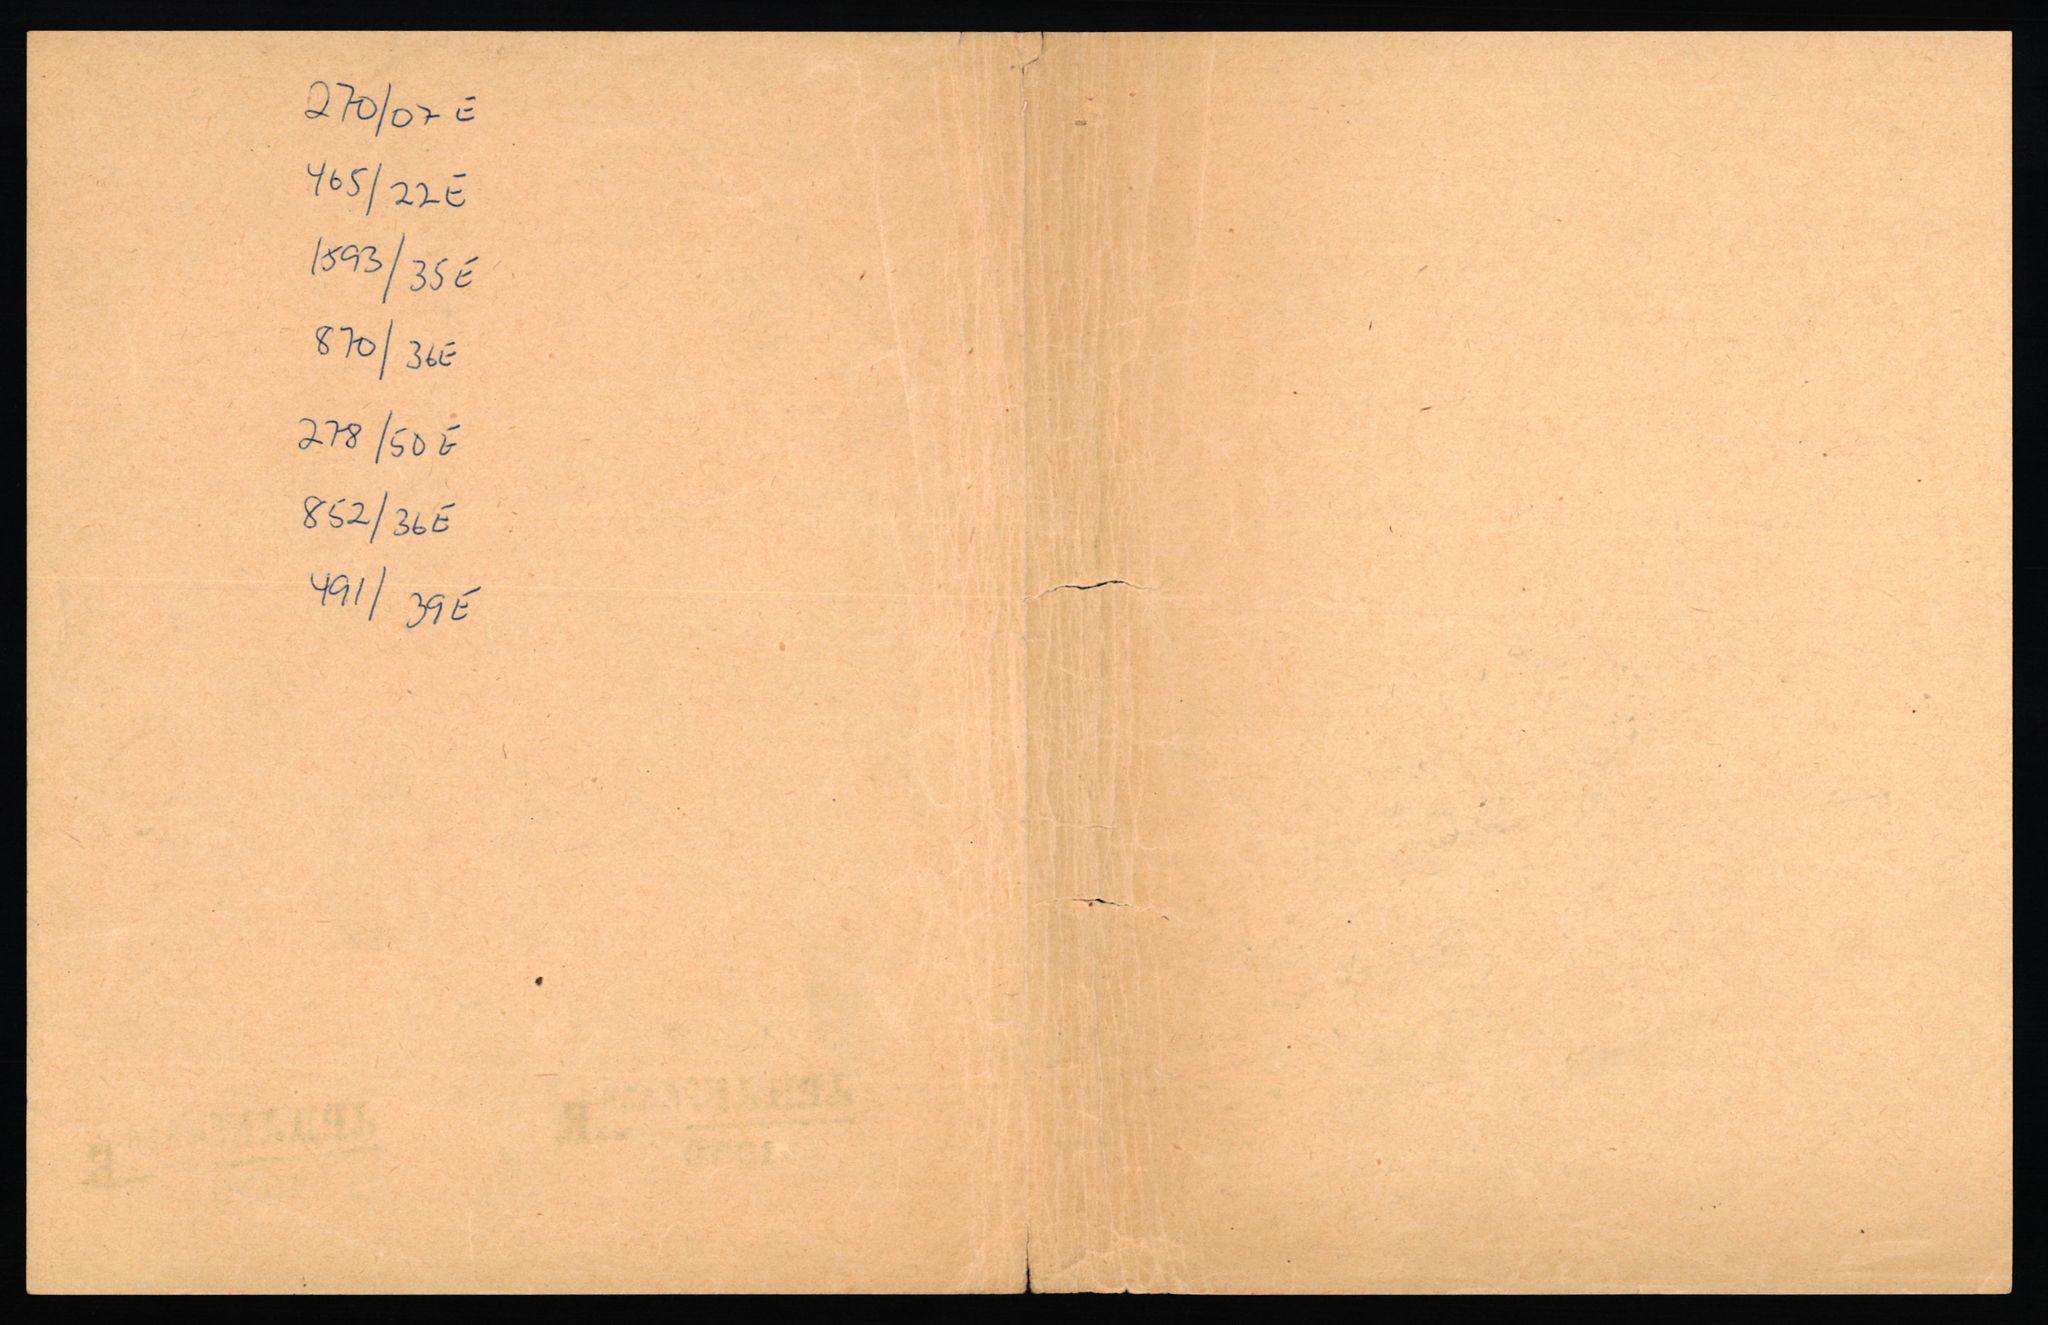 270/07 E
465/22E
1593/35E
870/36E
278/50 E
852/36E
491/39E